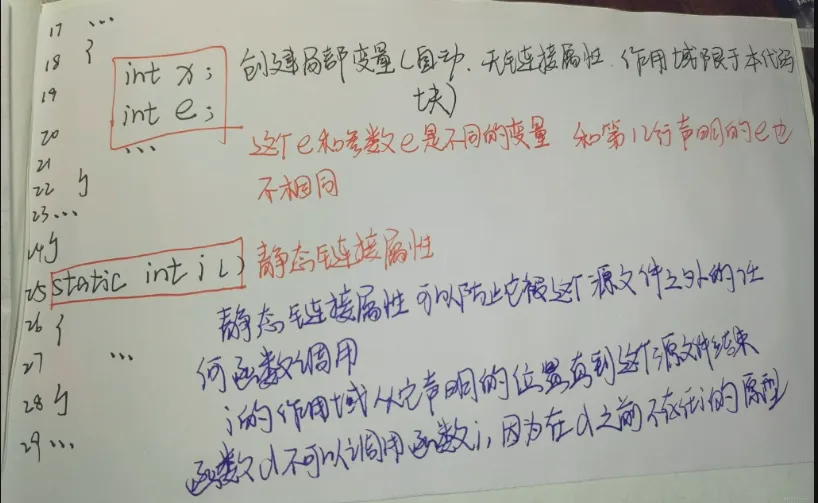 17 ...
18 {
int x; 创建局部变量(自动、无链接属性、作用域限于本代码
19
int e; 块)
20
... 这个e和参数e是不同的变量 和第12行声明的e也
21
22 } 不相同
23 ...
24 }
25 static int i() 静态链接属性
26 { 静态链接属性 可以防止它被这个源文件之外的任
27 ... 何函数调用
28 } i的作用域从它声明的位置直到这个源文件结束
29 ... 函数d不可以调用函数i,因为在d之前不存在i的原型